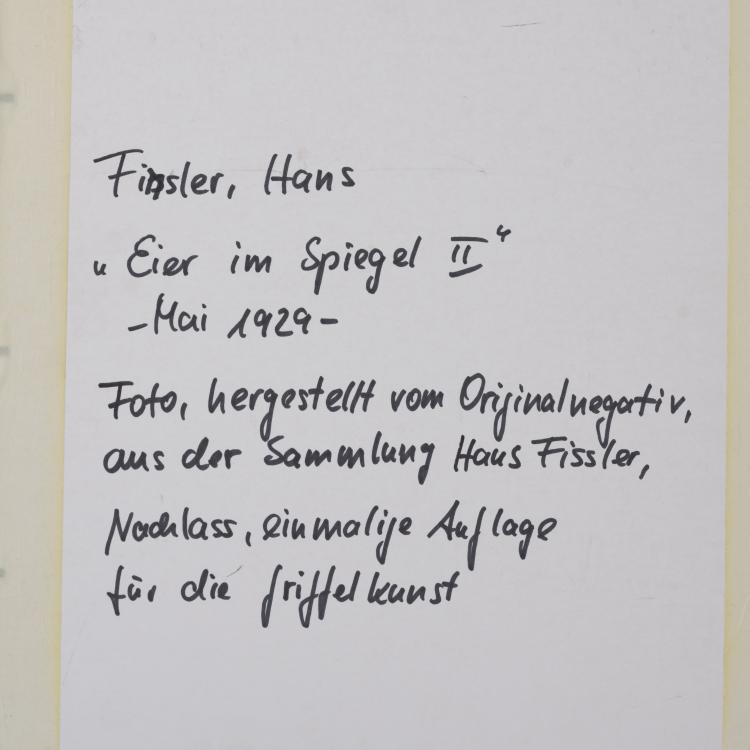 Finsler, Hans
„Eier im Spiegel II“
-Mai 1929-
Foto, hergestellt vom Originalnegativ,
aus der Sammlung Hans Fissler,
Nachlass, einmalige Auflage
für die Griffelkunst